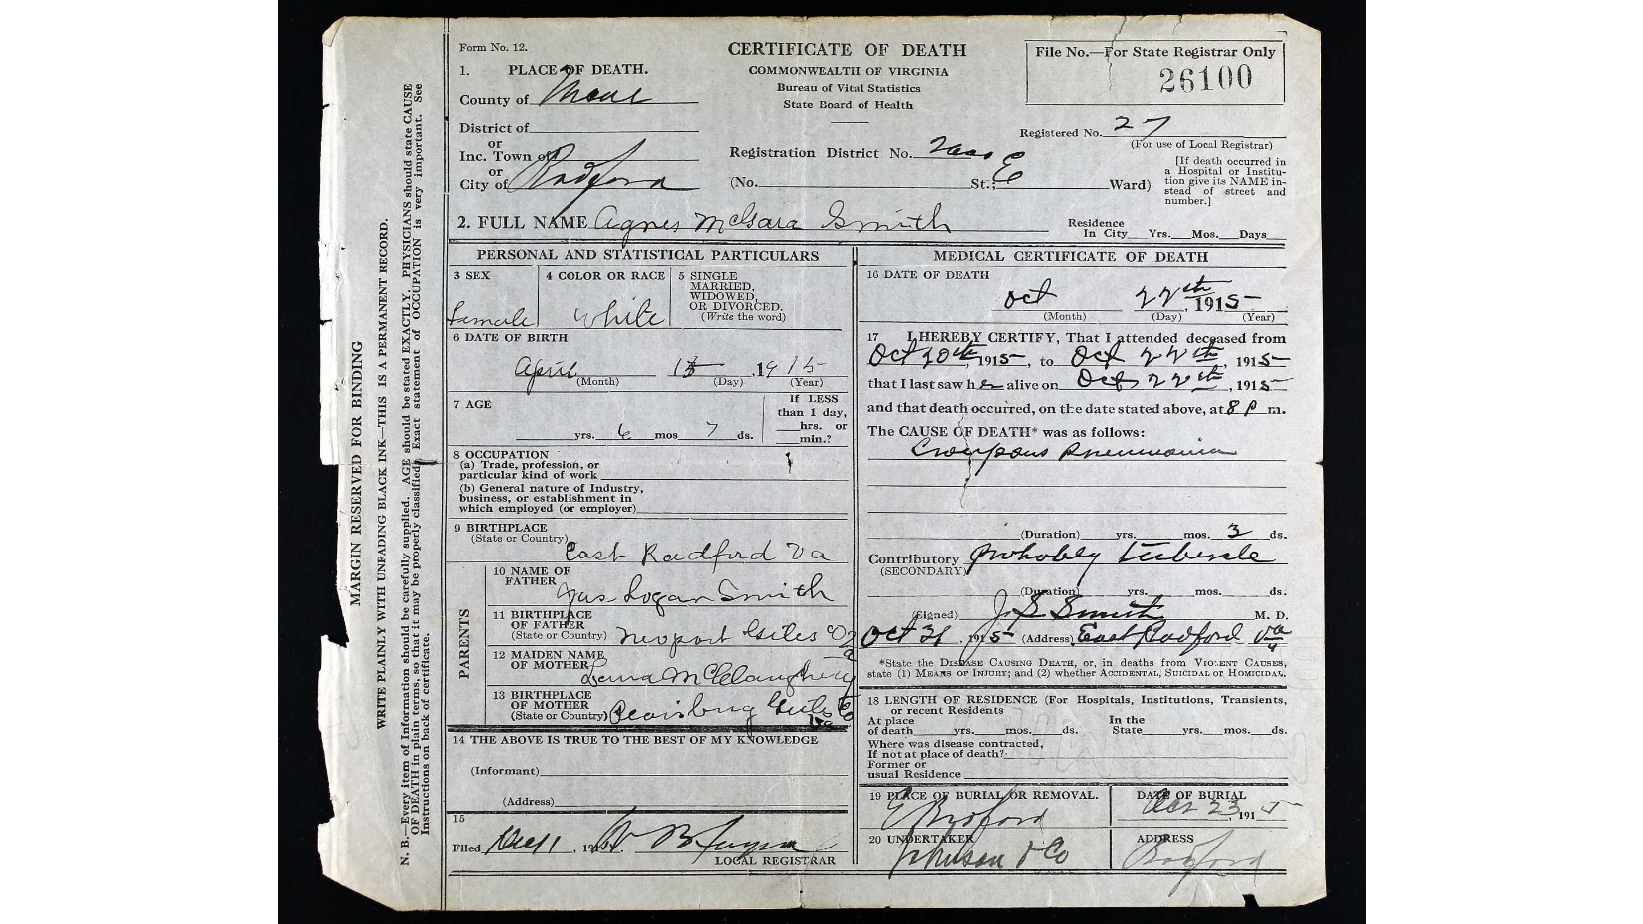 Form No. 12.
CERTIFICATE OF DEATH
COMMONWEALTH OF VIRGINIA
Bureau of Vital Statistics
State Board of Health
File No.—For State Registrar Only
26100
1. PLACE OF DEATH.
County of
District of
or
Inc. Town of
or
City of Radford
Registered No. 27
(For use of Local Registrar)
Registration District No. E
(No. St.; Ward)
[If death occurred in
a Hospital or Institu-
tion give its NAME in-
stead of street and
number.]
2. FULL NAME Agnes McGara Smith
Residence
In City Yrs. Mos. Days
PERSONAL AND STATISTICAL PARTICULARS
3 SEX
female
4 COLOR OR RACE
White
5 SINGLE
MARRIED,
WIDOWED,
OR DIVORCED.
(Write the word)
6 DATE OF BIRTH
April 15, 1915
(Month) (Day) (Year)
7 AGE
yrs. 6 mos 7 ds.
If LESS
than 1 day,
hrs. or
min.?
8 OCCUPATION
(a) Trade, profession, or
particular kind of work
(b) General nature of Industry,
business, or establishment in
which employed (or employer)
9 BIRTHPLACE
(State or Country)
East Radford Va
PARENTS
10 NAME OF
FATHER
Jas. Logan Smith
11 BIRTHPLACE
OF FATHER
(State or Country) Newport Giles Co
Va
12 MAIDEN NAME
OF MOTHER
McClaugherty
13 BIRTHPLACE
OF MOTHER
(State or Country) Pearisburg Giles Co
Va
14 THE ABOVE IS TRUE TO THE BEST OF MY KNOWLEDGE
(Informant)
(Address)
15
Filed , 19
LOCAL REGISTRAR
MEDICAL CERTIFICATE OF DEATH
16 DATE OF DEATH
Oct 22th, 1915
(Month) (Day) (Year)
17 I HEREBY CERTIFY, That I attended deceased from
Oct 20th, 1915, to Oct 22th, 1915
that I last saw her alive on Oct 22th, 1915
and that death occurred, on the date stated above, at 8 P m.
The CAUSE OF DEATH* was as follows:
Croupous Pneumonia
(Duration) yrs. mos. 3 ds.
Contributory Probably Tubercle
(SECONDARY)
(Duration) yrs. mos. ds.
(Signed) J. S. Smith M. D.
Oct 31, 1915 (Address) East Radford Va
*State the DISEASE CAUSING DEATH, or, in deaths from VIOLENT CAUSES,
state (1) MEANS OF INJURY; and (2) whether ACCIDENTAL, SUICIDAL OR HOMICIDAL.
18 LENGTH OF RESIDENCE (For Hospitals, Institutions, Transients,
or recent Residents
At place
of death yrs. mos. ds.
In the
State yrs. mos. ds.
Where was disease contracted,
If not at place of death?
Former or
usual Residence
19 PLACE OF BURIAL OR REMOVAL.
E Radford
DATE OF BURIAL
Oct 23, 1915
20 UNDERTAKER
Johnson & Co
ADDRESS
Radford
MARGIN RESERVED FOR BINDING
WRITE PLAINLY WITH UNFADING BLACK INK—THIS IS A PERMANENT RECORD.
N. B.—Every item of Information should be carefully supplied. AGE should be stated EXACTLY. PHYSICIANS should state CAUSE
OF DEATH in plain terms, so that it may be properly classified. Exact statement of OCCUPATION is very important. See
Instructions on back of certificate.